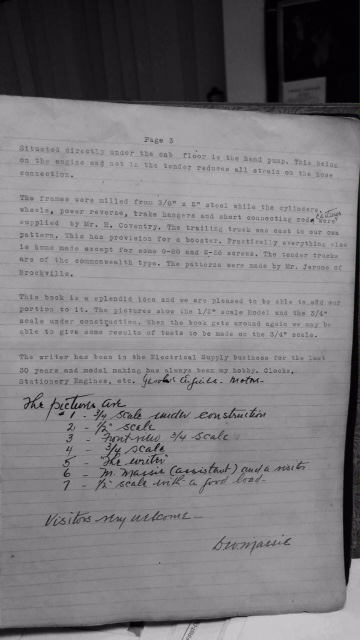 Page 3
Situated directly under the cab floor is the hand pump. This being
on the engine and not in the tender reduces all strain on the hose
connection.
The frames were milled from 3/8" x 2" steel while the cylinders,
wheels, power reverse, brake hangers and short connecting rods were
supplied by Mr. H. Coventry. The trailing truck was cast to our own
pattern. This has provision for a booster. Practically everything else
is home made except for some 0-80 and 2-56 screws. The tender trucks
are of the commonwealth type. The patterns were made by Mr. Jerome of
Brockville.
This book is a splendid idea and we are pleased to be able to add our
portion to it. The pictures show the 1/2" scale model and the 3/4"
scale under construction. When the book gets around again we may be
able to give some results of tests to be made on the 3/4" scale.
The writer has been in the Electrical Supply business for the last
30 years and model making has always been my hobby. Clocks,
Stationery Engines, etc. Gasoline Engines. Motors.
The pictures are
1 - 3/4 scale under construction
2 - 1/2" scale
3 - Front view 3/4 scale
4 - 3/4 scale
5 - The writer
6 - M. Massie (assistant) and a visitor
7 - 1/2" scale with a good load -
Visitors very welcome -
Massie